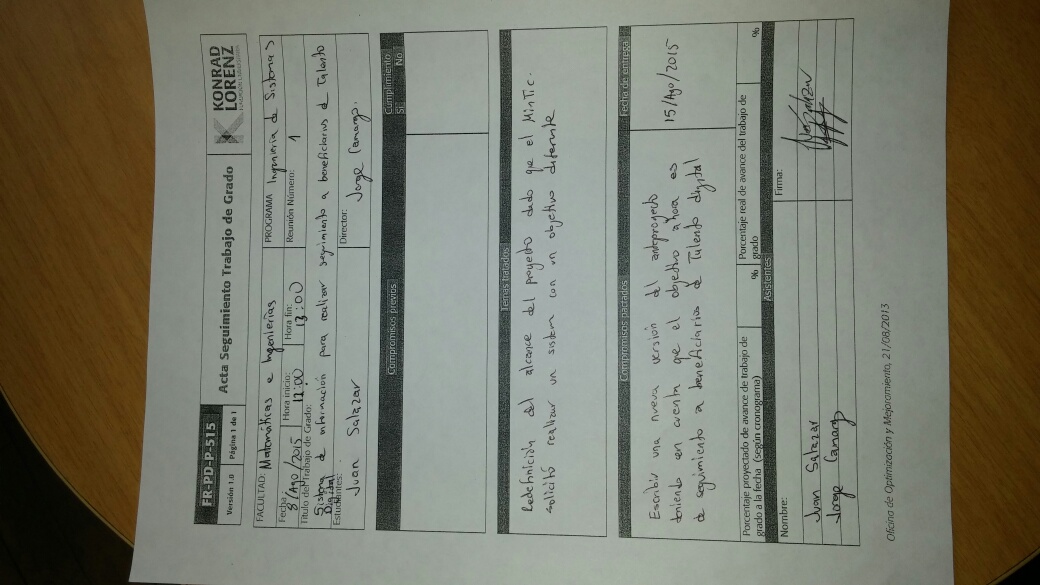 FR-PD-P-515
Versión 1.0 Página 1 de 1
Acta Seguimiento Trabajo de Grado
KONRAD
LORENZ
FUNDACIÓN UNIVERSITARIA
FACULTAD: Matemáticas e Ingenierías PROGRAMA Ingeniería de Sistemas
Fecha: 8/Ago/2015 Hora inicio: 12:00 Hora fin: 13:00 Reunión Número: 1
Titulo del Trabajo de Grado:
Sistema de información para realizar seguimiento a beneficiarios de Talento
Digital
Estudiantes: Juan Salazar Director: Jorge Camargo.
Compromisos previos Cumplimiento
Si No
Temas tratados
Redefinición del alcance del proyecto dado que el MinTic.
solicitó realizar un sistem con un objetivo diferente
Compromisos pactados Fecha de entrega
Escribir una nueva versión del anteproyecto
teniendo en cuenta que el objetivo ahora es
de seguimiento a beneficiarios de Talento digital
15/Ago/2015
Porcentaje proyectado de avance de trabajo de
grado a la fecha (según cronograma) %
Porcentaje real de avance del trabajo de
grado %
Asistentes
Nombre: Firma:
Juan Salazar
Jorge Camargo
Oficina de Optimización y Mejoramiento, 21/08/2013